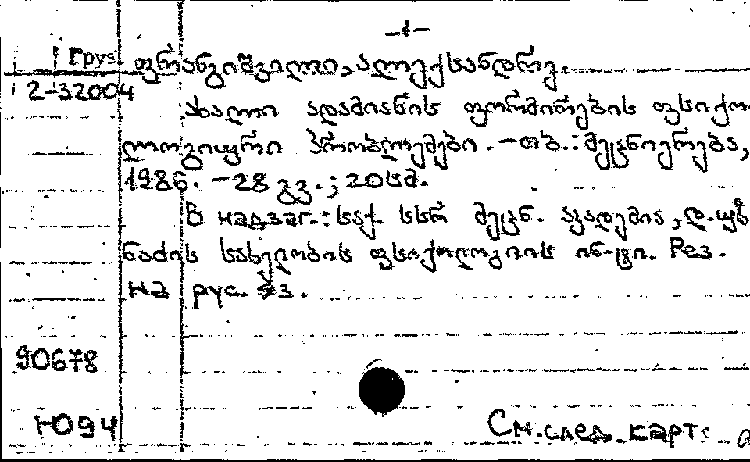 -1-
Груз. ფრანგიშვილი, ალექსანდრე.
2-32004
ახალი ადამიანის ფორმირების ფსიქო
ლოგიური პრობლემები. - თბ.: მეცნიერება,
1986. - 28 გვ.; 20სმ.
В надзаг.: საქ. სსრ მეცნ. აკადემია, დ. უზ
ნაძის სახელობის ფსიქოლოგიის ინ-ტი. Рез.
на рус. яз.
90678
Ю94
См. след. карт.